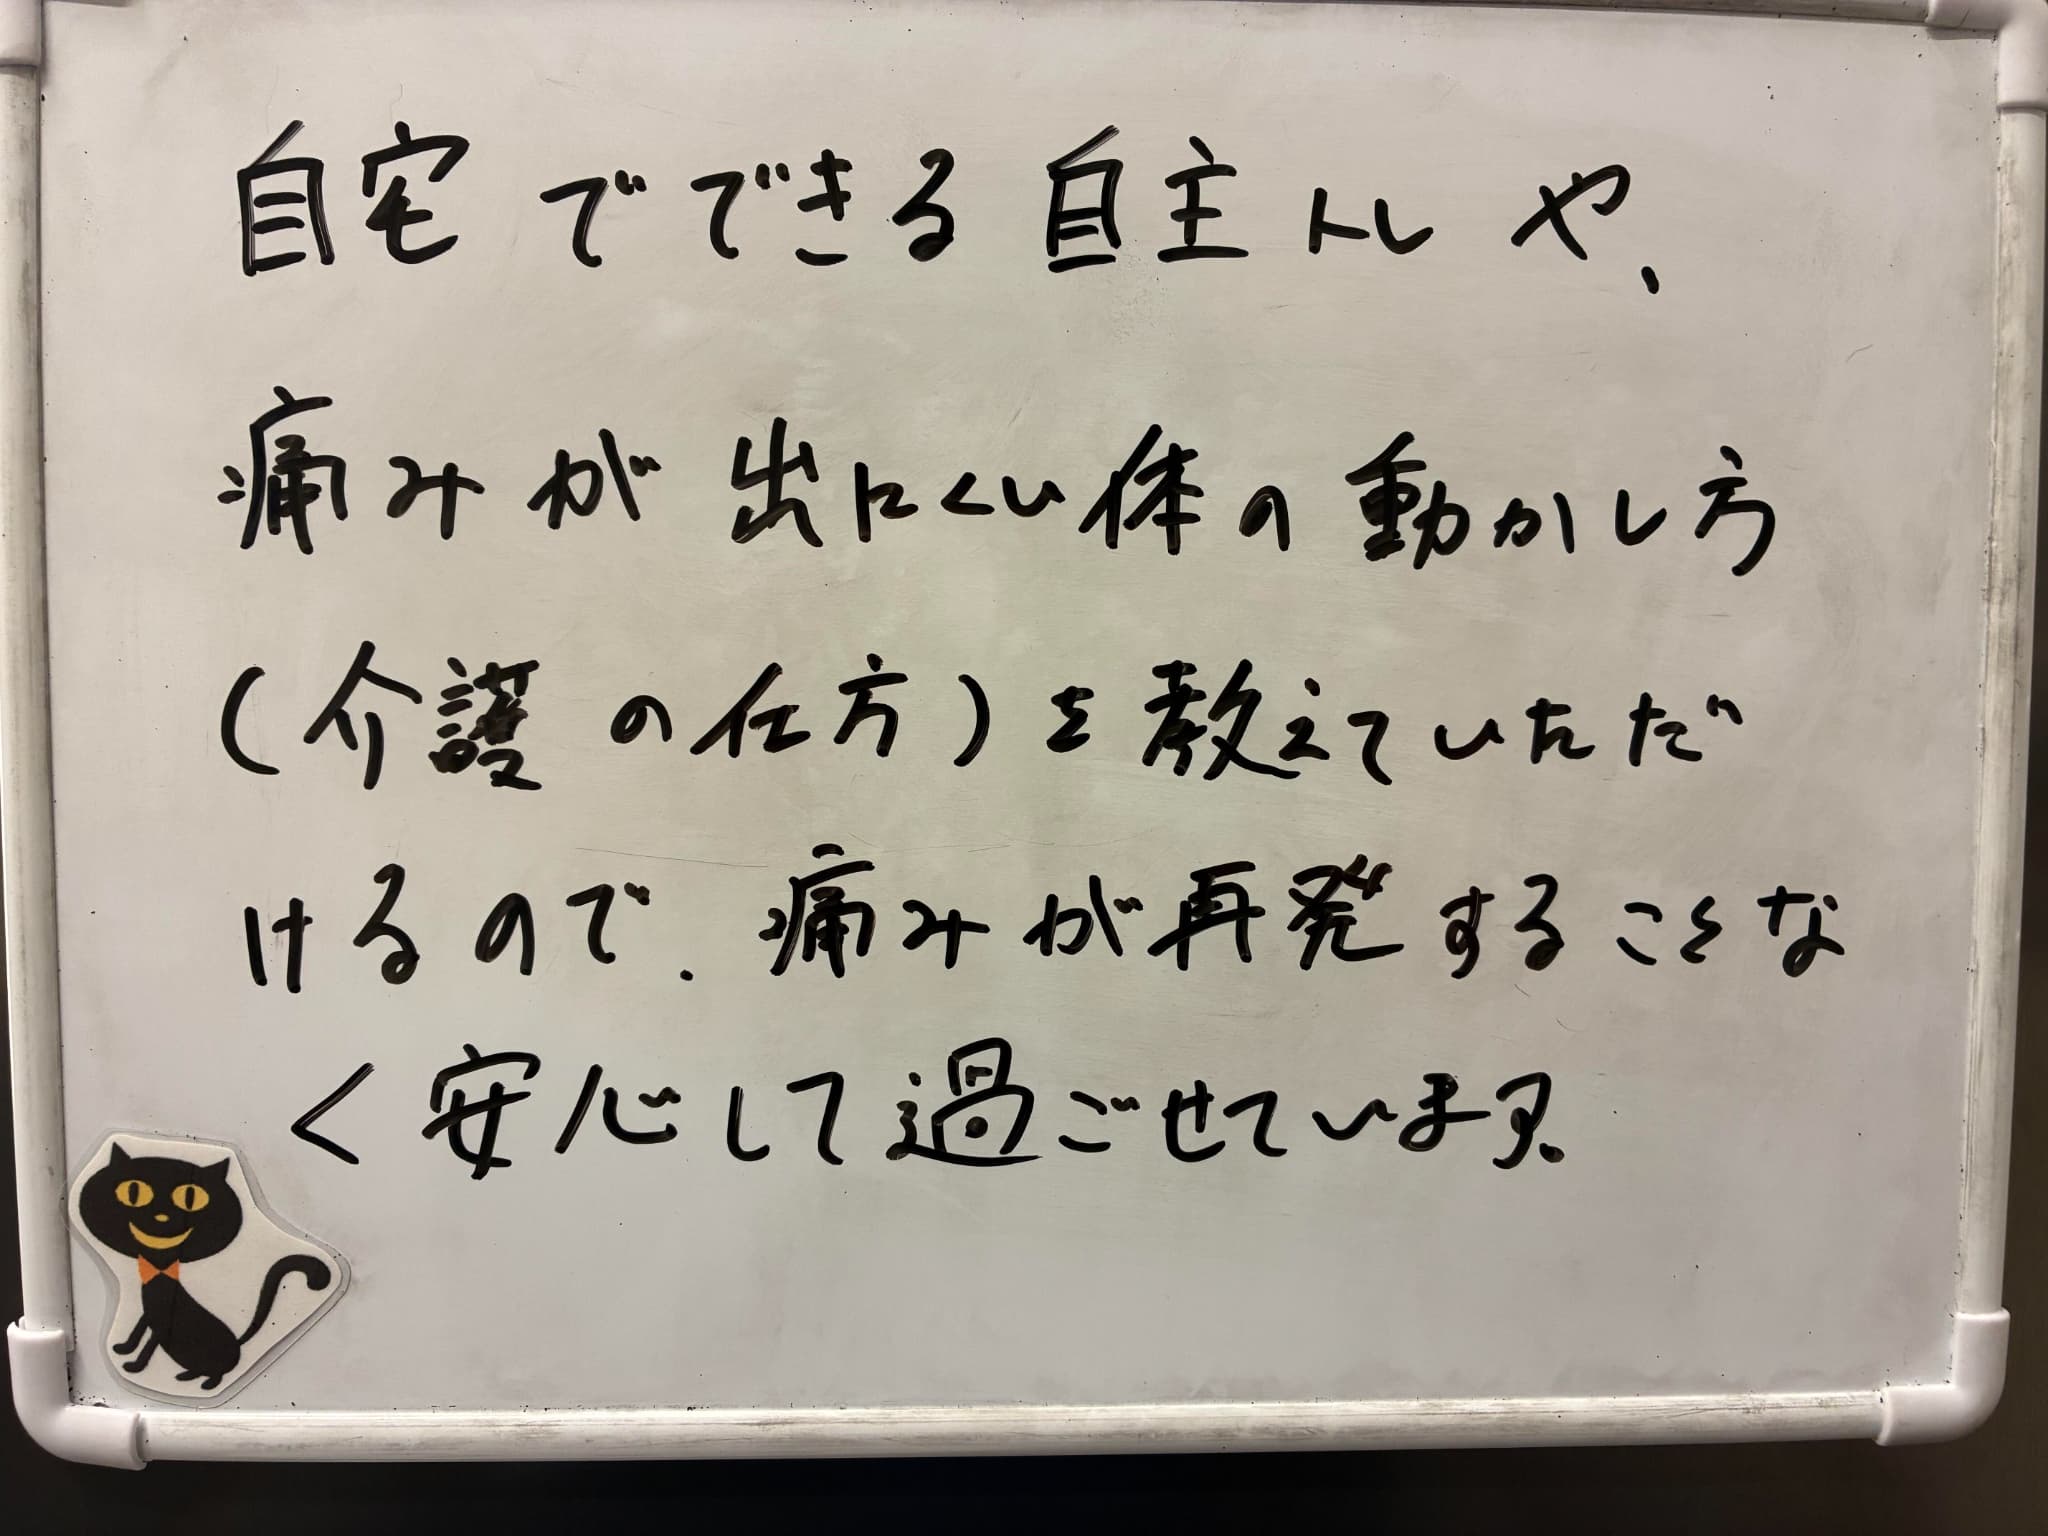 自宅でできる自主トレや、
痛みが出にくい体の動かし方
(介護の仕方)を教えていただ
けるので、痛みが再発することな
く安心して過ごせています。